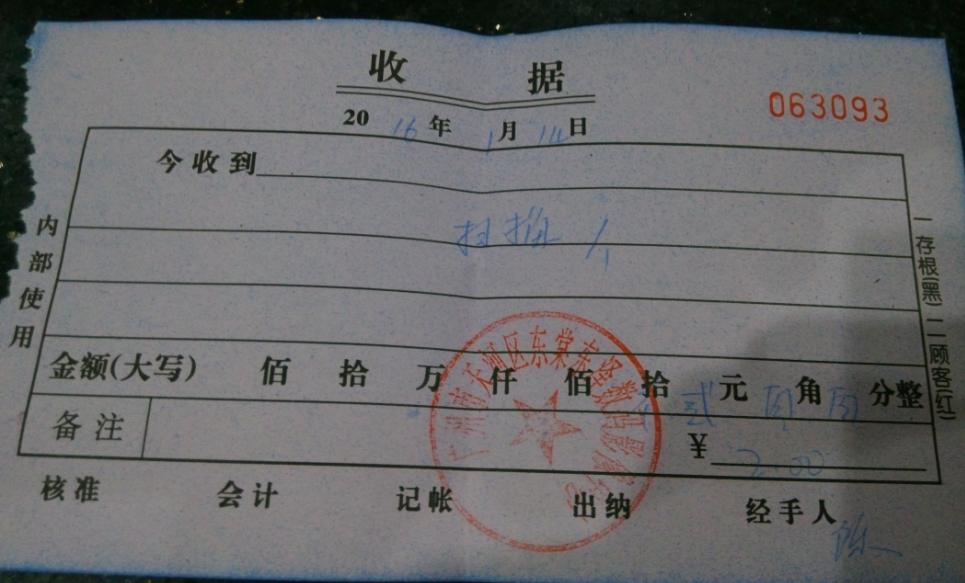 收 据
063093
2016年1月14日
今收到
扫描 1个
内部使用
一存根(黑) 二顾客(红)
金额(大写) 佰 拾 万 仟 佰 拾 贰 元 角 分整
备注
¥ 2.00
广州市天河区东棠东绎数码影像
核准 会计 记帐 出纳 经手人
陈